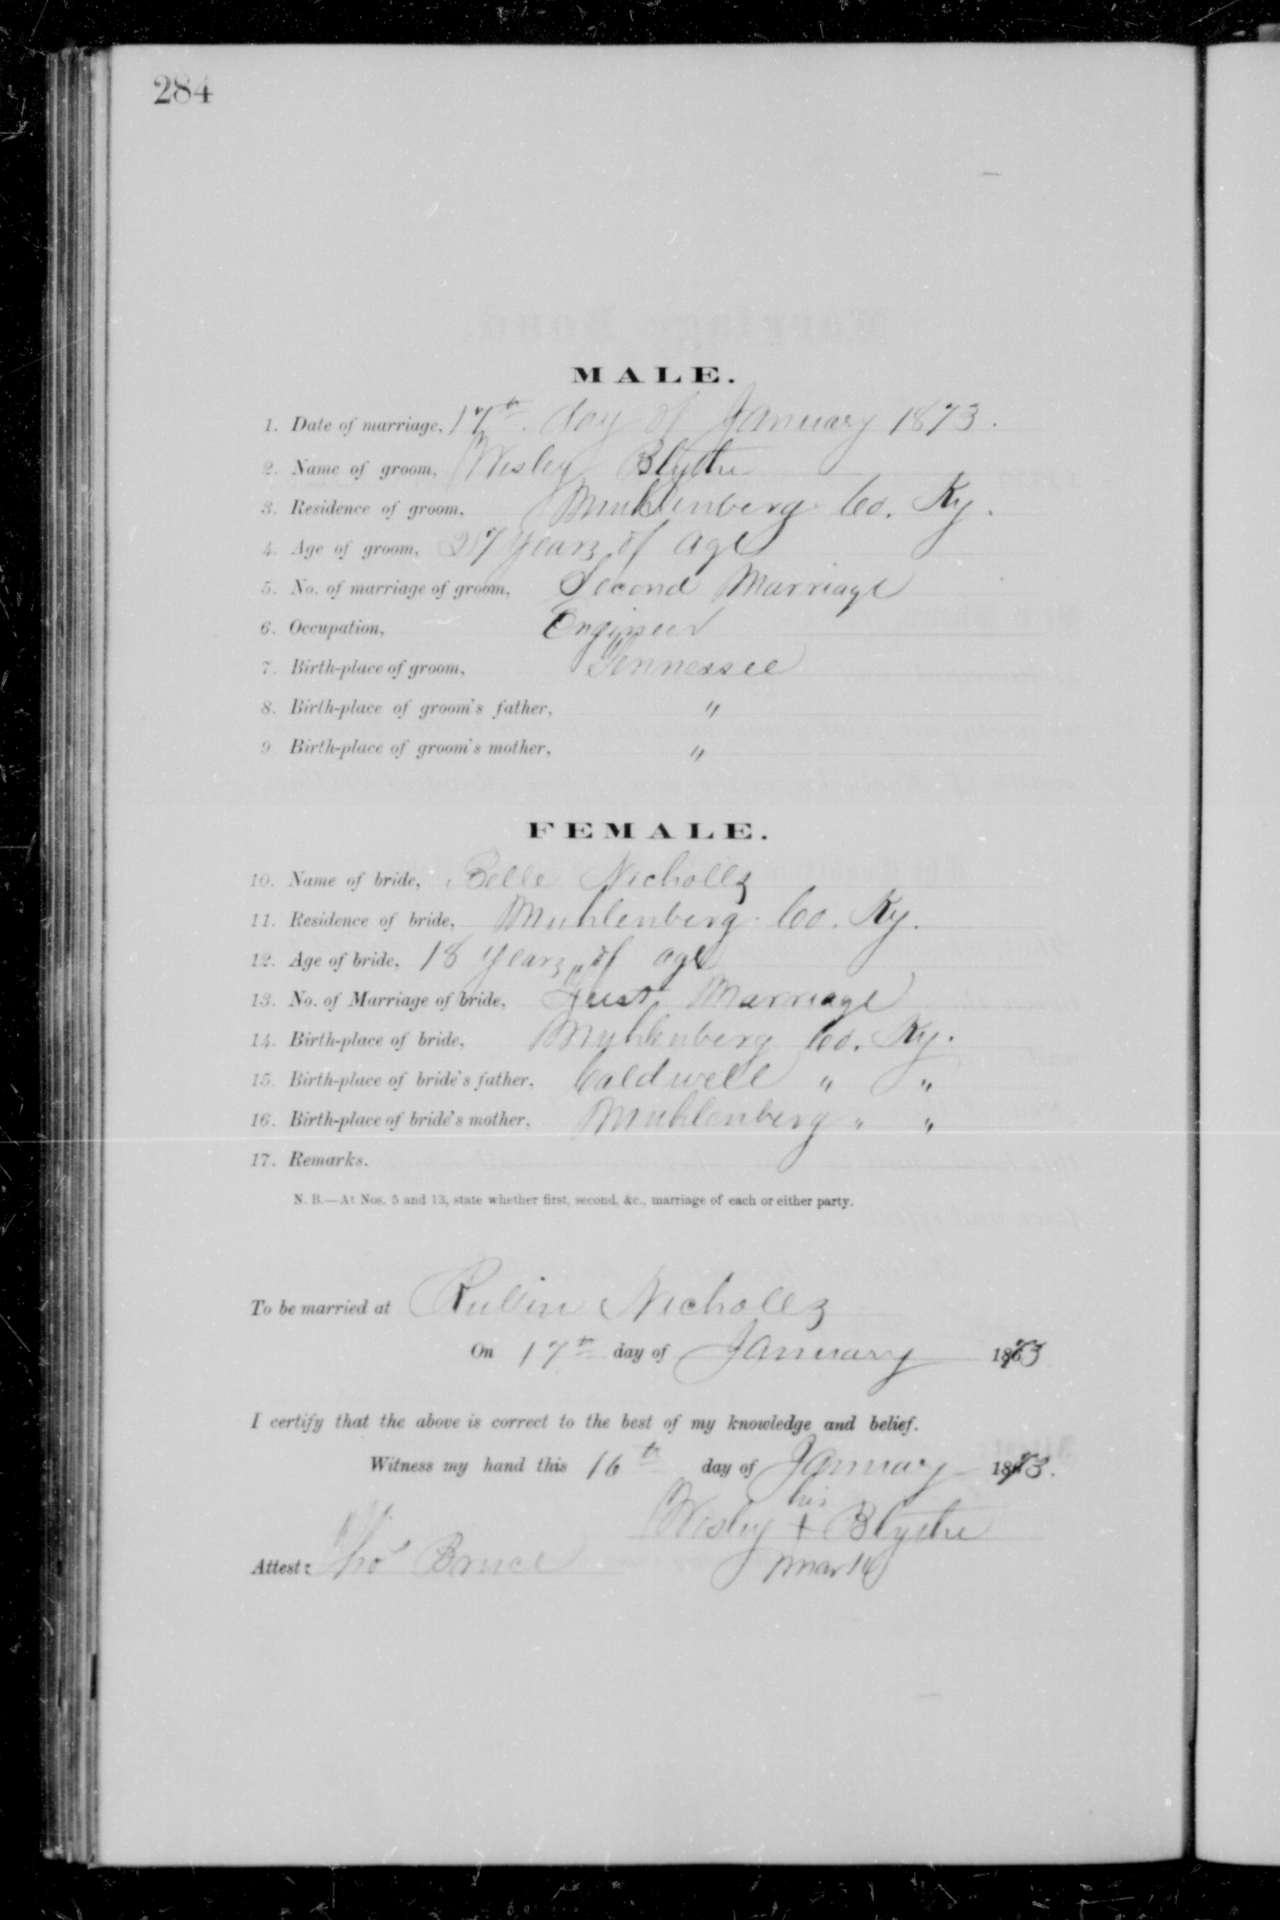 284
MALE.
1. Date of marriage, 17th day of January 1873.
2. Name of groom, Wesley Blythe
3. Residence of groom, Muhlenberg Co. Ky.
4. Age of groom, 27 years of age
5. No. of marriage of groom, Second Marriage
6. Occupation, Engineer
7. Birth-place of groom, Tennessee
8. Birth-place of groom's father, "
9. Birth-place of groom's mother, "
FEMALE.
10. Name of bride, Belle Nicholls
11. Residence of bride, Muhlenberg Co. Ky.
12. Age of bride, 18 years of age
13. No. of Marriage of bride, First Marriage
14. Birth-place of bride, Muhlenberg Co. Ky.
15. Birth-place of bride's father, Caldwell " "
16. Birth-place of bride's mother, Muhlenberg " "
17. Remarks.
N. B.—At Nos. 5 and 13, state whether first, second, &c., marriage of each or either party.
To be married at Rubin Nicholls
On 17th day of January 1873
I certify that the above is correct to the best of my knowledge and belief.
Witness my hand this 16th day of January 1873.
his
Wesley + Blythe
mark
Attest: Thos Bruce